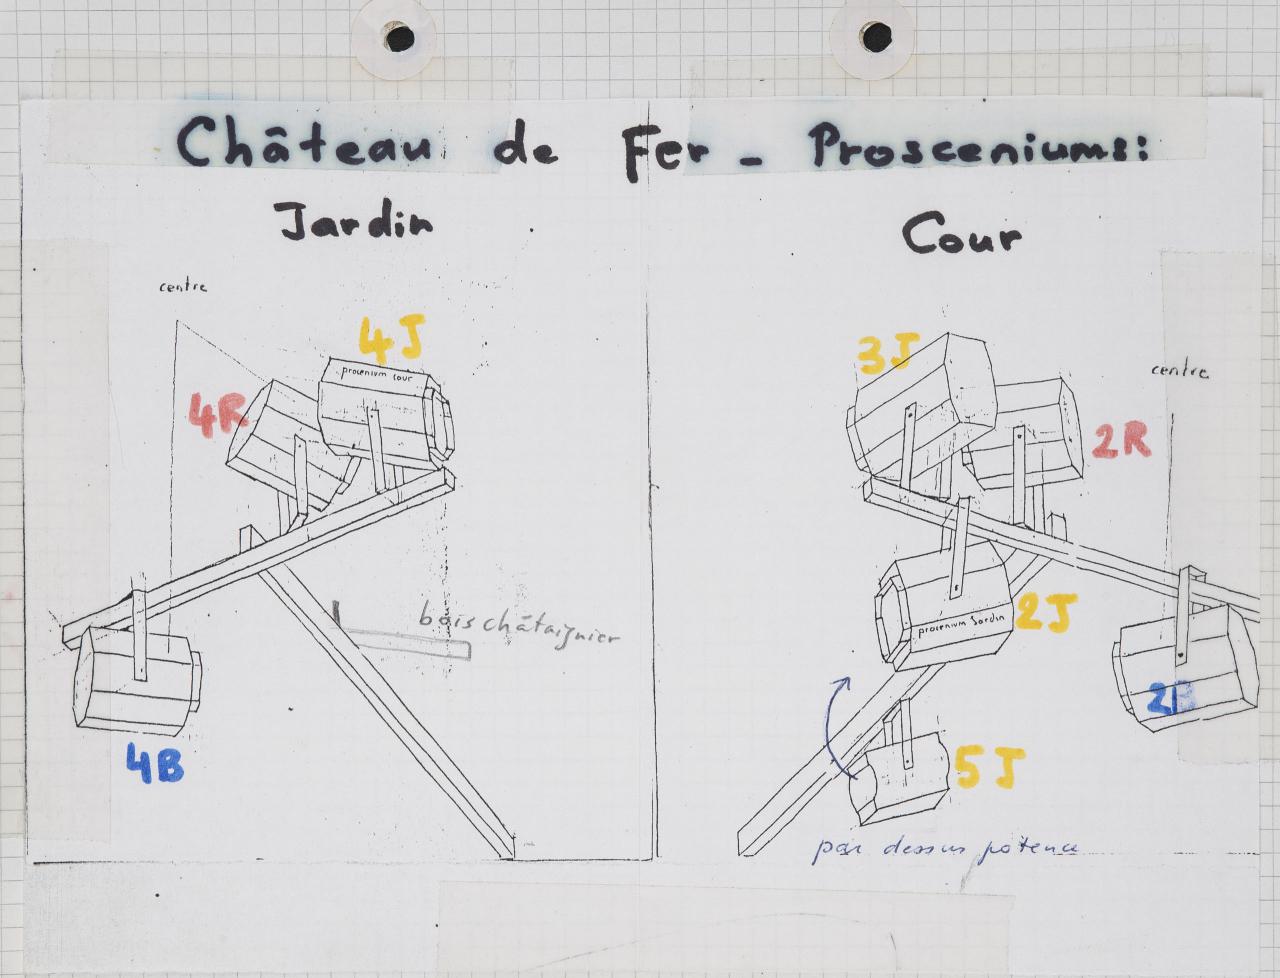 Château de Fer - Prosceniums:
Jardin
Cour
centre
4J
procenium cour
4R
bois châtaignier
4B
3J
centre
2R
procenium Jardin
2J
2B
5J
par dessus potence